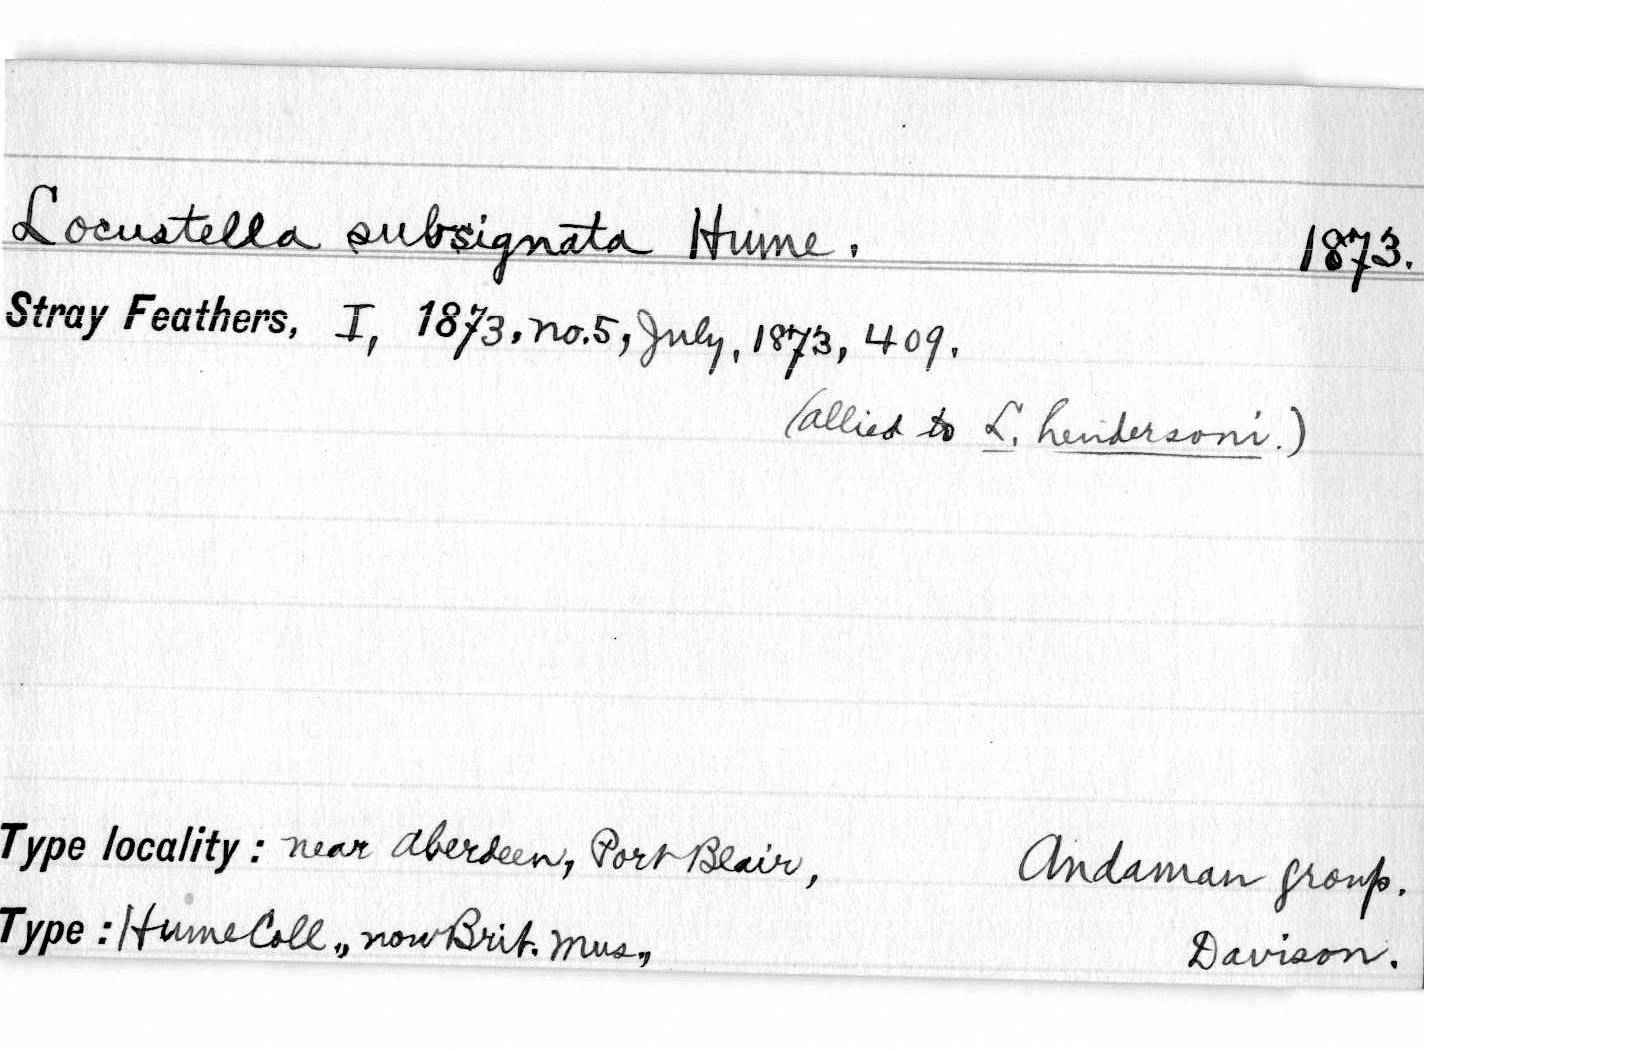 Locustella subsignata Hume. 1873.
Stray Feathers, I, 1873, no.5, July, 1873, 409.
(allied to L. hendersoni.)
Type locality : near Aberdeen, Port Blair, Andaman group.
Type : Hume Coll., now Brit. Mus., Davison.